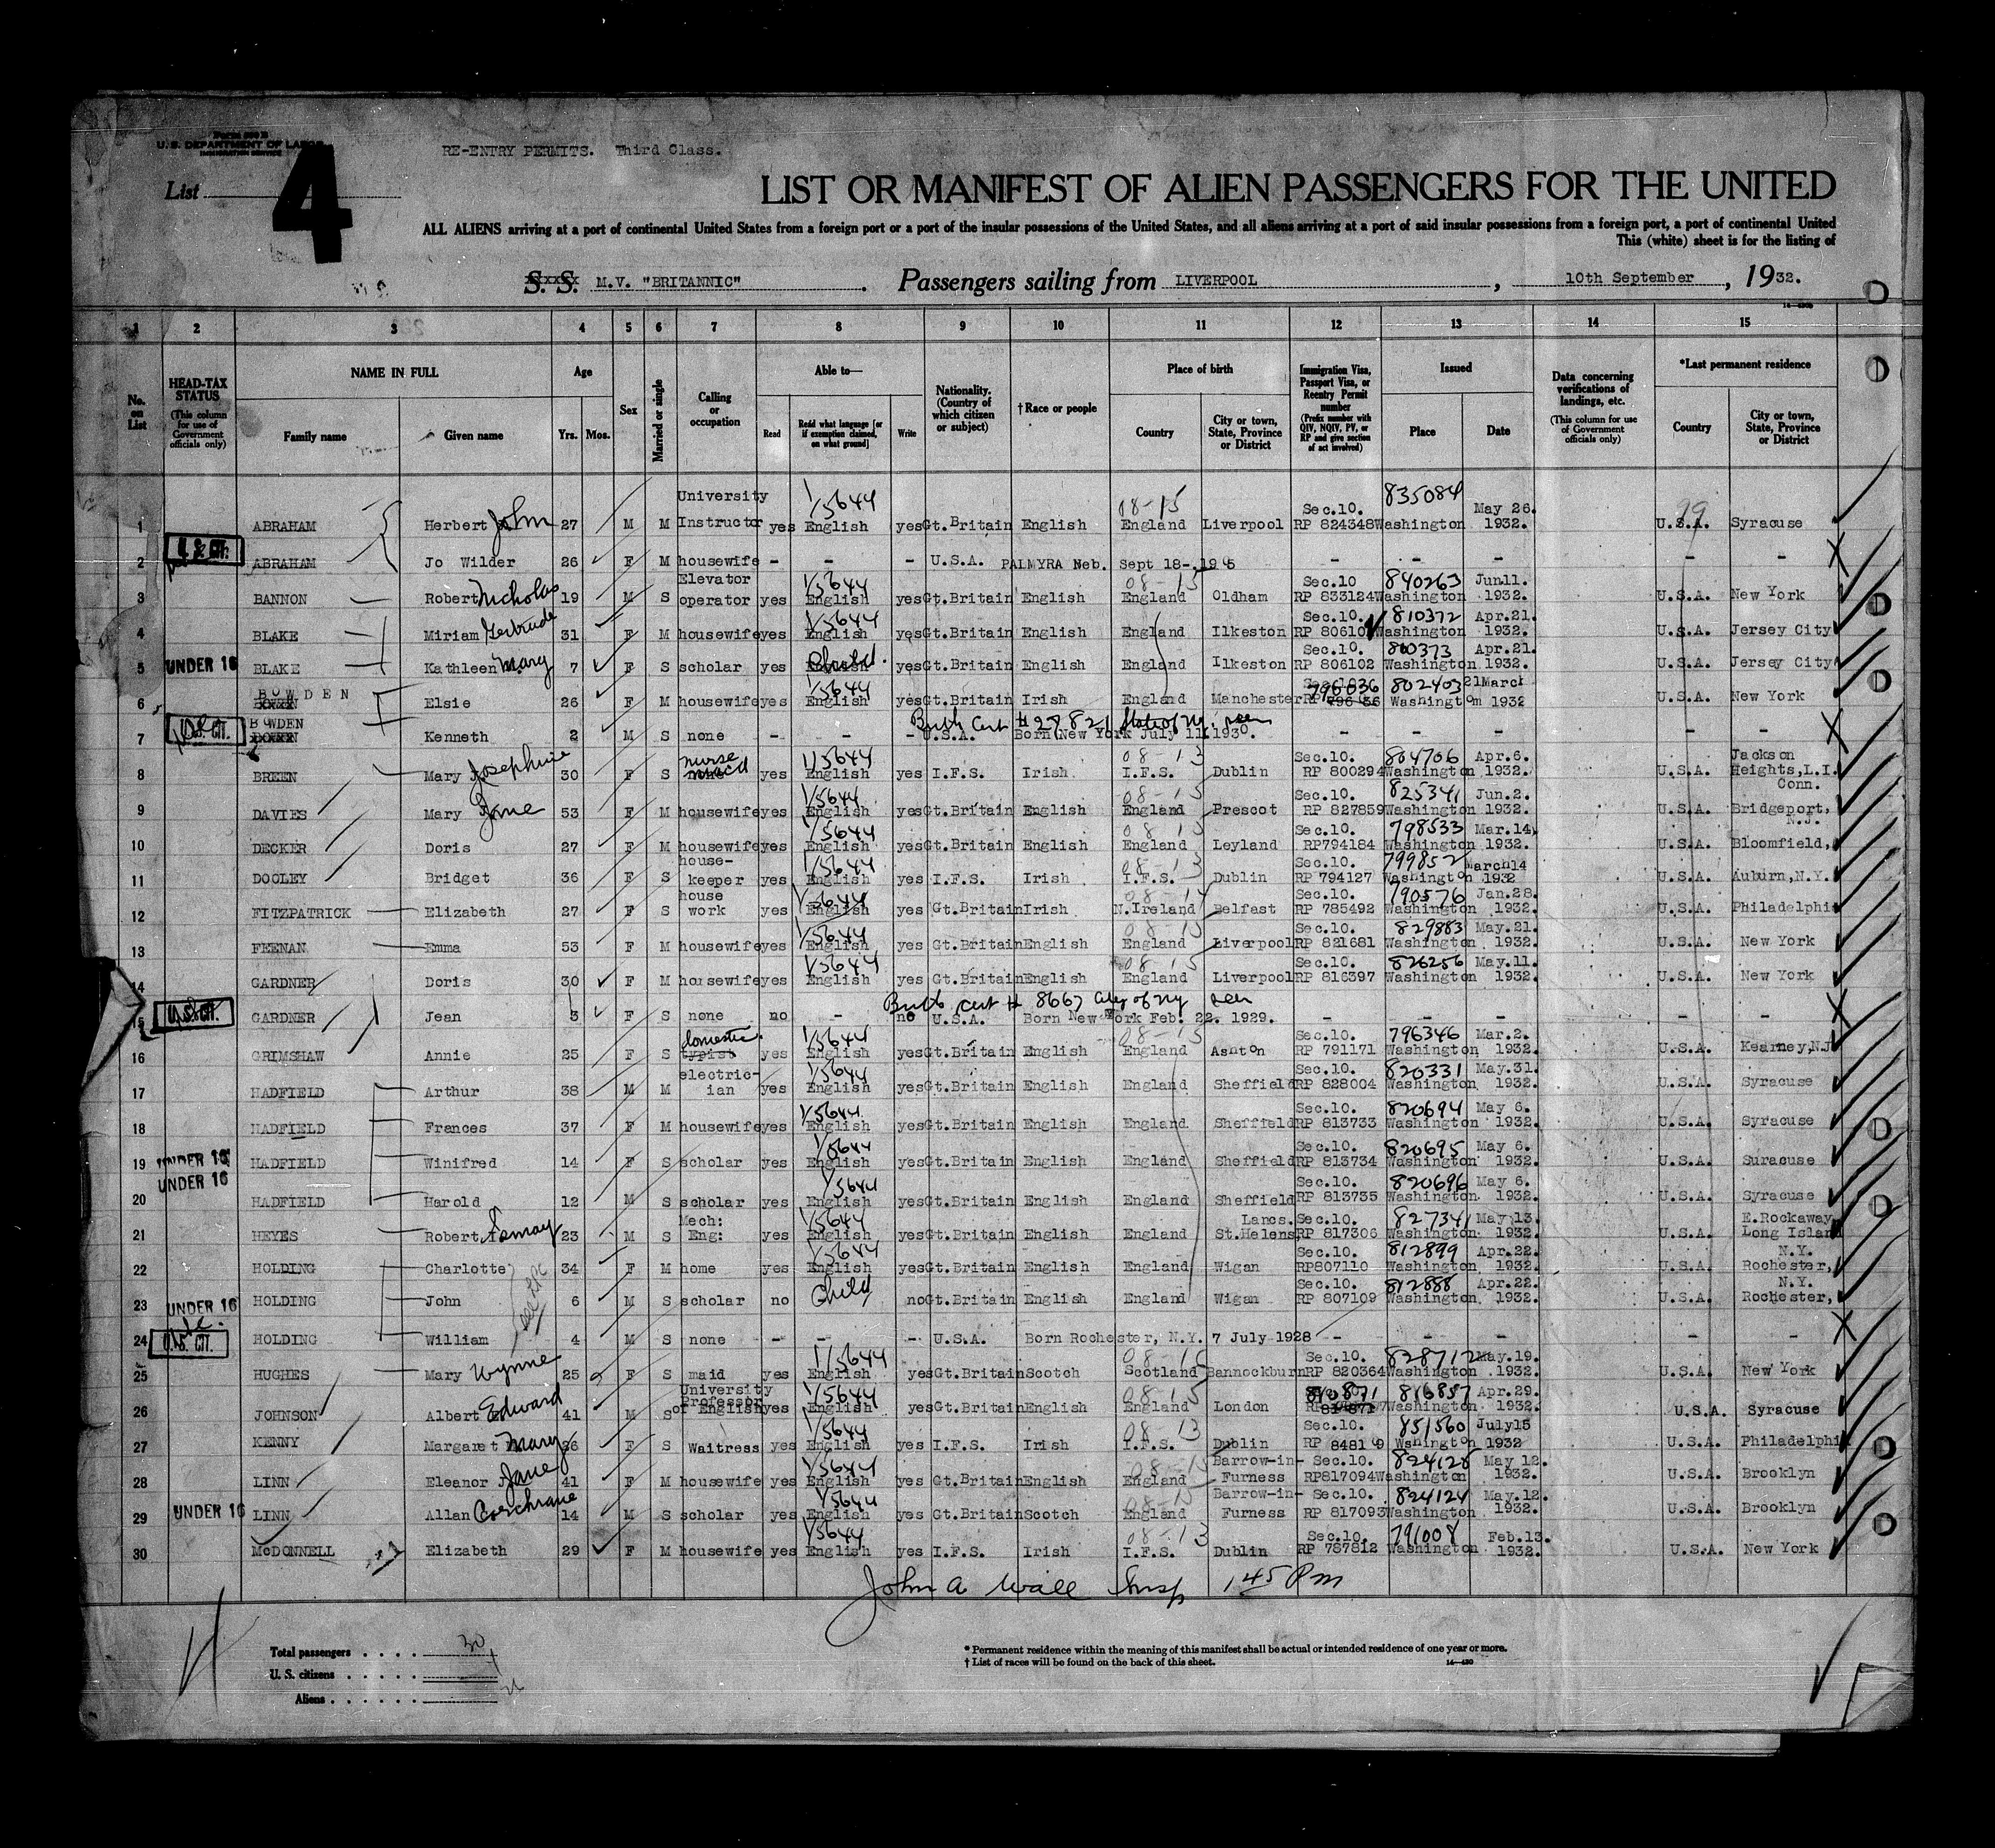 Form 500 B
U. S. DEPARTMENT OF LABOR
IMMIGRATION SERVICE
RE-ENTRY PERMITS. Third Class.
List 4
LIST OR MANIFEST OF ALIEN PASSENGERS FOR THE UNITED
ALL ALIENS arriving at a port of continental United States from a foreign port or a port of the insular possessions of the United States, and all aliens arriving at a port of said insular possessions from a foreign port, a port of continental United
This (white) sheet is for the listing of
S. S. M.V. "BRITANNIC" . Passengers sailing from LIVERPOOL , 10th September , 1932.
1 2 3 4 5 6 7 8 9 10 11 12 13 14 15
No. on List
HEAD-TAX STATUS (This column for use of Government officials only)
NAME IN FULL
Family name Given name
Age
Yrs. Mos.
Sex
Married or single
Calling or occupation
Able to—
Read Read what language [or if exemption claimed, on what ground] Write
Nationality. (Country of which citizen or subject)
†Race or people
Place of birth
Country City or town, State, Province or District
Immigration Visa, Passport Visa, or Reentry Permit number (Prefix number with QIV, NQIV, PV, or RP and give section of act involved)
Issued
Place Date
Data concerning verifications of landings, etc. (This column for use of Government officials only)
*Last permanent residence
Country City or town, State, Province or District
1 ABRAHAM Herbert John 27 M M University Instructor yes 1/5644 English yes Gt.Britain English 08-15 England Liverpool Sec.10. RP 824348 835084 Washington May 26. 1932. U.S.A. Syracuse
2 U.S. CIT. ABRAHAM Jo Wilder 26 F M housewife - - - U.S.A. PALMYRA Neb. Sept 18-.1905 - - - - -
3 BANNON Robert Nicholas 19 M S Elevator operator yes 1/5644 English yes Gt.Britain English 08-15 England Oldham Sec.10 RP 833124 840263 Washington Jun.11. 1932. U.S.A. New York
4 BLAKE Miriam Gertrude 31 F M housewife yes 1/5644 English yes Gt.Britain English England Ilkeston Sec.10. RP 80610 810372 Washington Apr.21. 1932. U.S.A. Jersey City
5 UNDER 16 BLAKE Kathleen Mary 7 F S scholar yes Child. yes Gt.Britain English England Ilkeston Sec.10. RP 806102 810373 Washington Apr.21. 1932. U.S.A. Jersey City
6 BOWDEN Elsie 26 F M housewife yes 1/5644 English yes Gt.Britain Irish England Manchester RP 796036 802403 Washington 21 March 1932 U.S.A. New York
7 U.S. CIT. BOWDEN Kenneth 2 M S none - - - U.S.A. Birth Cert #29821 State of Ny. seen Born New York July 11 1930. - - - - -
8 BREEN Mary Josephine 30 F S nurse maid yes 1/5644 English yes I.F.S. Irish 08-13 I.F.S. Dublin Sec.10. RP 800294 804706 Washington Apr.6. 1932. U.S.A. Jackson Heights,L.I.
9 DAVIES Mary Jane 53 F M housewife yes 1/5644 English yes Gt.Britain English 08-15 England Prescot Sec.10. RP 827859 825341 Washington Jun.2. 1932. U.S.A. Conn. Bridgeport,
10 DECKER Doris 27 F M housewife yes 1/5644 English yes Gt.Britain English 08-15 England Leyland Sec.10. RP794184 798533 Washington Mar.14. 1932. U.S.A. N.J. Bloomfield,
11 DOOLEY Bridget 36 F S house-keeper yes 1/5644 English yes I.F.S. Irish 08-13 I.F.S. Dublin Sec.10. RP 794127 799852 Washington March 14 1932 U.S.A. Auburn,N.Y.
12 FITZPATRICK Elizabeth 27 F S house work yes 1/5644 English yes Gt.Britain Irish 08-14 N.Ireland Belfast Sec.10. RP 785492 790576 Washington Jan.28. 1932. U.S.A. Philadelphia
13 FEENAN Emma 53 F M housewife yes 1/5644 English yes Gt.Britain English 08-15 England Liverpool Sec.10. RP 821681 829883 Washington May.21. 1932. U.S.A. New York
14 GARDNER Doris 30 F M housewife yes 1/5644 English yes Gt.Britain English 08-15 England Liverpool Sec.10. RP 816397 826256 Washington May.11. 1932. U.S.A. New York
15 U.S. CIT. GARDNER Jean 3 F S none no - no U.S.A. Birth Cert # 8667 City of Ny seen Born New York Feb. 22. 1929. - - - - -
16 GRIMSHAW Annie 25 F S domestic typist yes 1/5644 English yes Gt.Britain English 08-15 England Ashton Sec.10. RP 791171 796346 Washington Mar.2. 1932. U.S.A. Kearney,N.J
17 HADFIELD Arthur 38 M M electric-ian yes 1/5644 English yes Gt.Britain English England Sheffield Sec.10. RP 828004 820331 Washington May.31. 1932. U.S.A. Syracuse
18 HADFIELD Frances 37 F M housewife yes 1/5644 English yes Gt.Britain English England Sheffield Sec.10. RP 813733 820694 Washington May 6. 1932. U.S.A. Syracuse
19 UNDER 16 HADFIELD Winifred 14 F S scholar yes 1/5644 English yes Gt.Britain English England Sheffield Sec.10. RP 813734 820695 Washington May 6. 1932. U.S.A. Suracuse
20 UNDER 16 HADFIELD Harold 12 M S scholar yes 1/5644 English yes Gt.Britain English England Sheffield Sec.10. RP 813735 820696 Washington May 6. 1932. U.S.A. Syracuse
21 HEYES Robert 23 M S Mech: Eng: yes 1/5644 English yes Gt.Britain English England Lancs. St.Helens Sec.10. RP 817306 827341 Washington May 13. 1932. U.S.A. E.Rockaway Long Island
22 HOLDING Charlotte 34 F M home yes 1/5644 English yes Gt.Britain English England Wigan Sec.10. RP807110 812899 Washington Apr.22. 1932. U.S.A. N.Y. Rochester,
23 UNDER 16 HOLDING John 6 M S scholar no Child no Gt.Britain English England Wigan Sec.10. RP 807109 812888 Washington Apr.22. 1932. U.S.A. N.Y. Rochester,
24 U.S. CIT. HOLDING William 4 M S none - - - U.S.A. Born Rochester, N.Y. 7 July 1928 - - - - -
25 HUGHES Mary Wynne 25 F S maid yes 1/5644 English yes Gt.Britain Scotch 08-15 Scotland Bannockburn Sec.10. RP 820364 828712 Washington May.19. 1932. U.S.A. New York
26 JOHNSON Albert Edward 41 M S University Professor of English yes 1/5644 English yes Gt.Britain English 08-15 England London 810871 816857 Washington Apr.29. 1932. U.S.A. Syracuse
27 KENNY Margaret Mary 36 F S Waitress yes 1/5644 English yes I.F.S. Irish 08 13 I.F.S. Dublin Sec.10. RP 8481 9 851560 Wshington July 15 1932 U.S.A. Philadelphia
28 LINN Eleanor Jane 41 F M housewife yes 1/5644 English yes Gt.Britain English 08-15 England Barrow-in-Furness Sec.10. RP817094 824125 Washington May 12. 1932. U.S.A. Brooklyn
29 UNDER 16 LINN Allan Corchrane 14 M S scholar yes 1/5644 English yes Gt.Britain Scotch 08-15 England Barrow-in-Furness Sec.10. RP 817093 824124 Washington May.12. 1932. U.S.A. Brooklyn
30 McDONNELL Elizabeth 29 F M housewife yes 1/5644 English yes I.F.S. Irish 08-13 I.F.S. Dublin Sec.10. RP 787812 791008 Washington Feb.13. 1932. U.S.A. New York
John A Wall Insp 1 45 Pm
Total passengers . . . . 30
U. S. citizens . . . . .
Aliens . . . . . .
* Permanent residence within the meaning of this manifest shall be actual or intended residence of one year or more.
† List of races will be found on the back of this sheet.
14—430